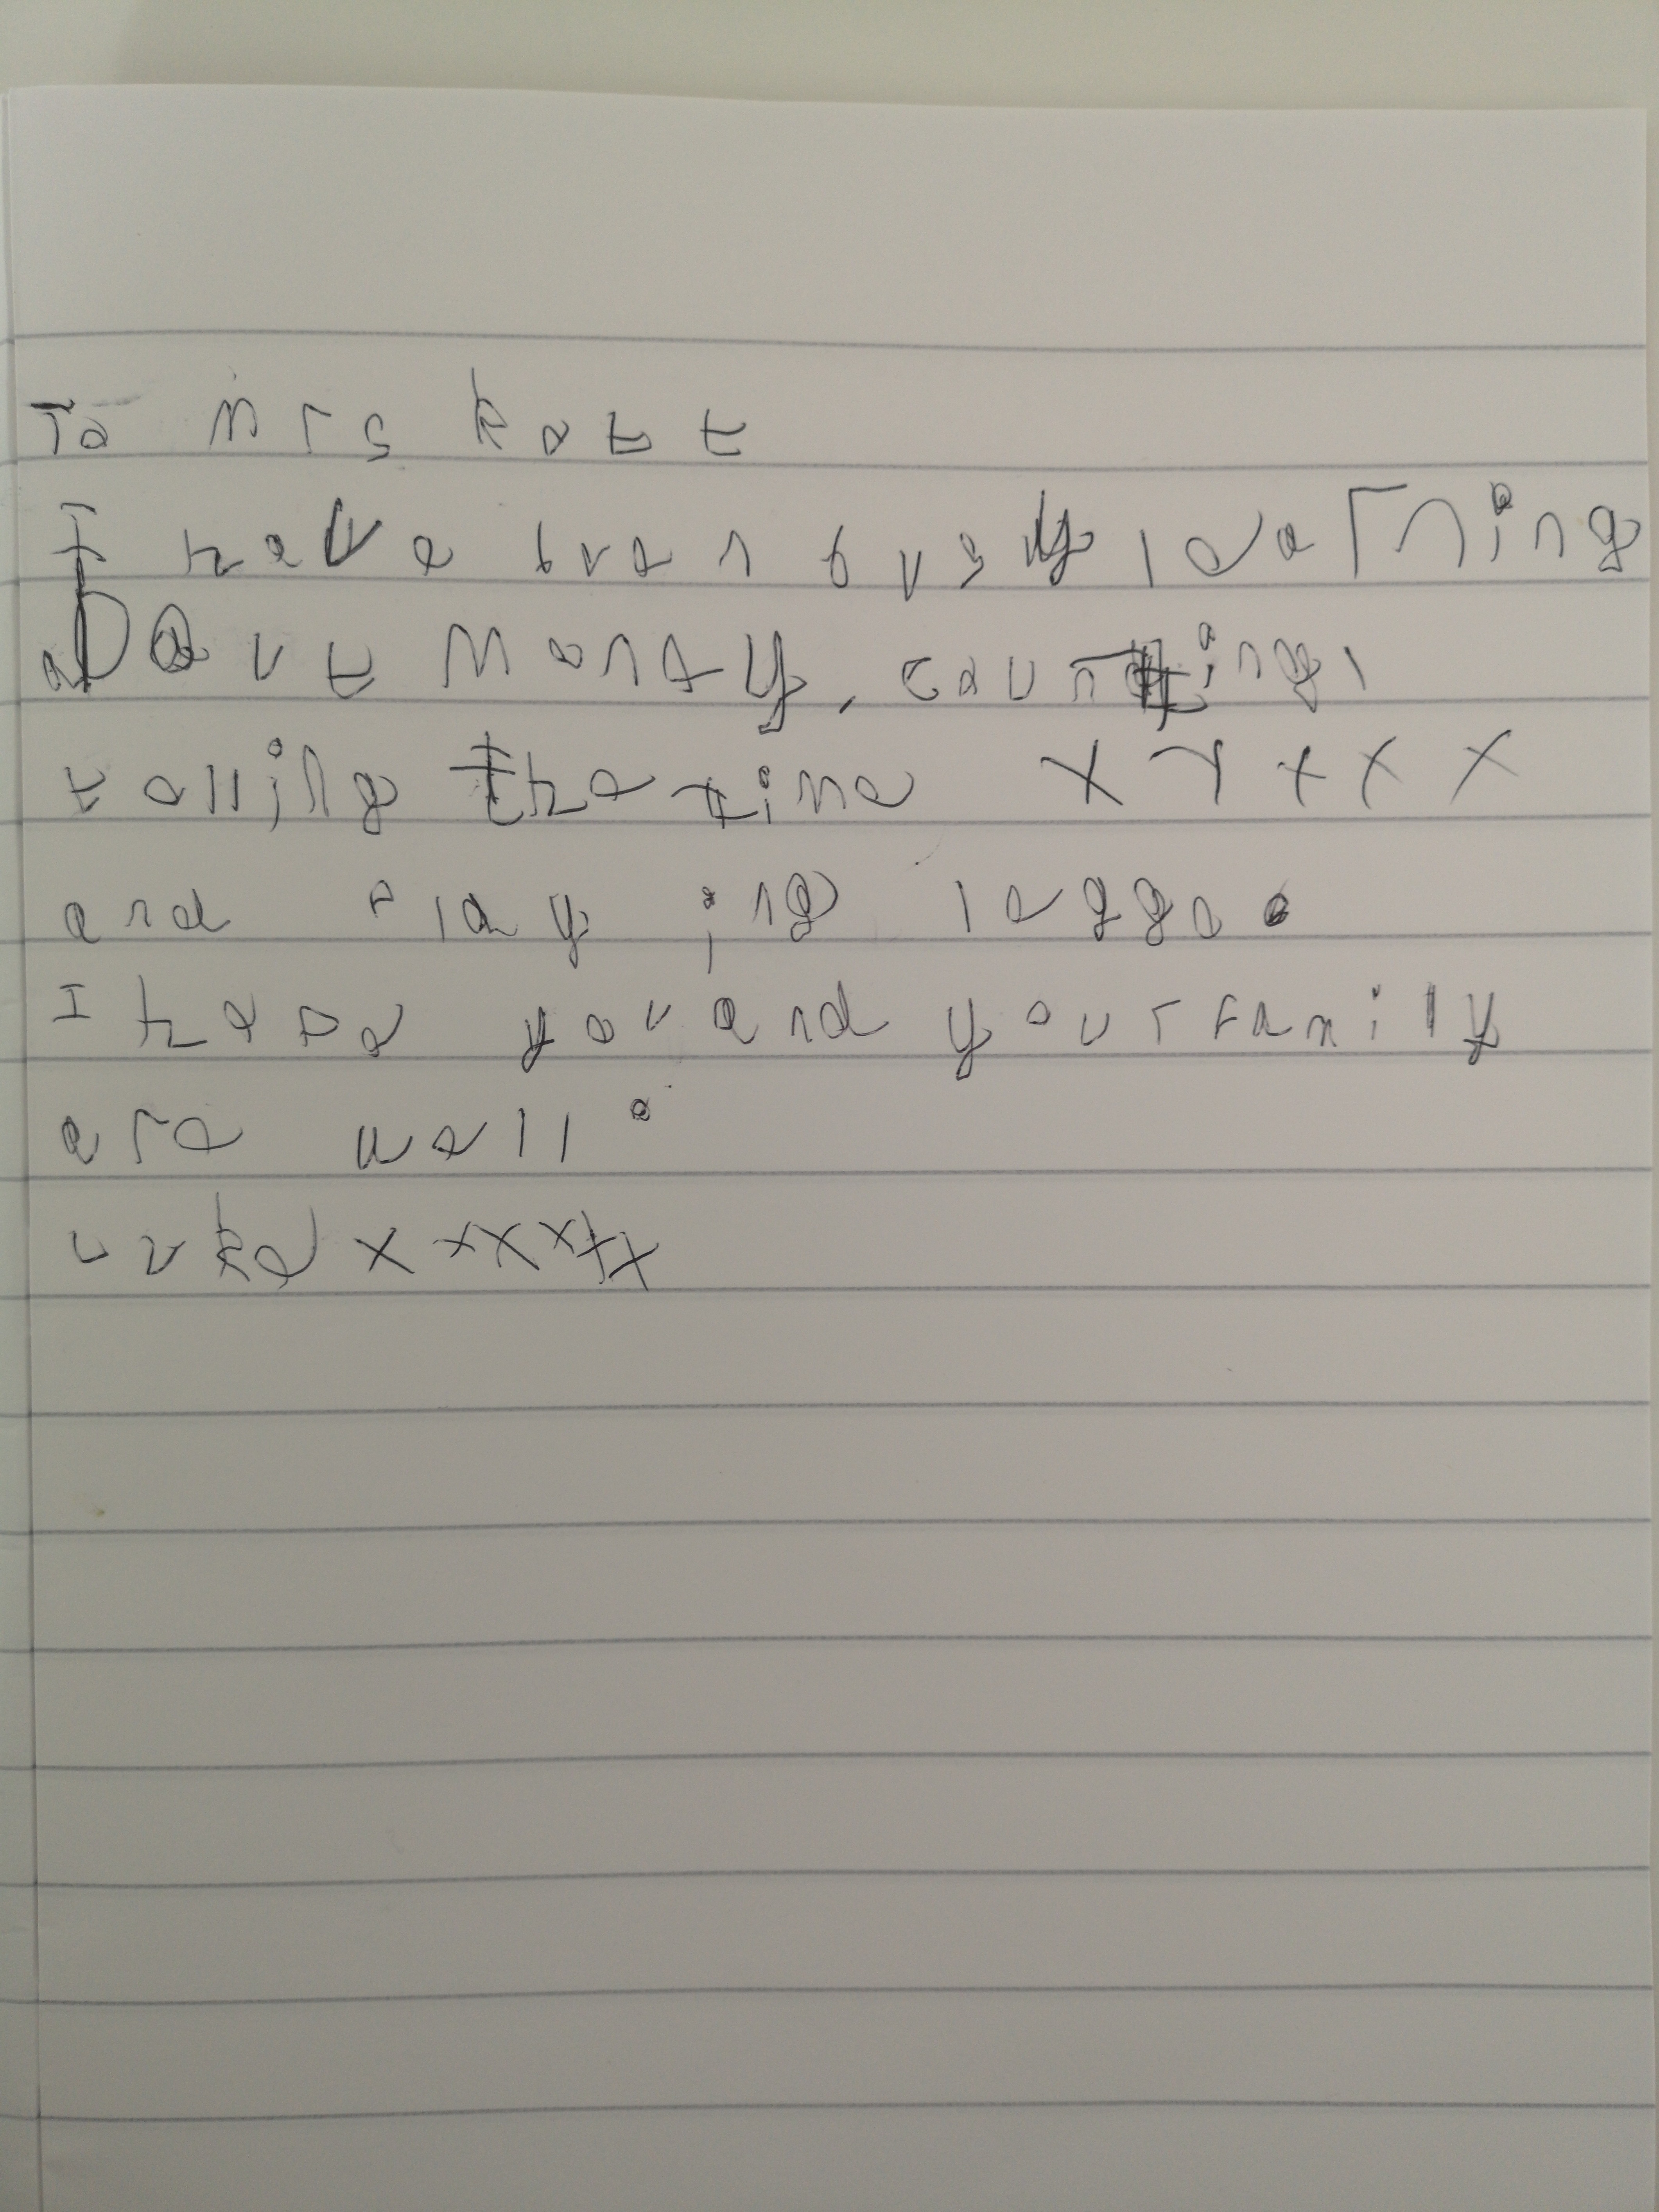 To Mrs kott
I have been busy learning
about Money, counting,
telling the time x x x x x
and playing leggo.
I hope you and your family
are well.
Luke x x x x x x